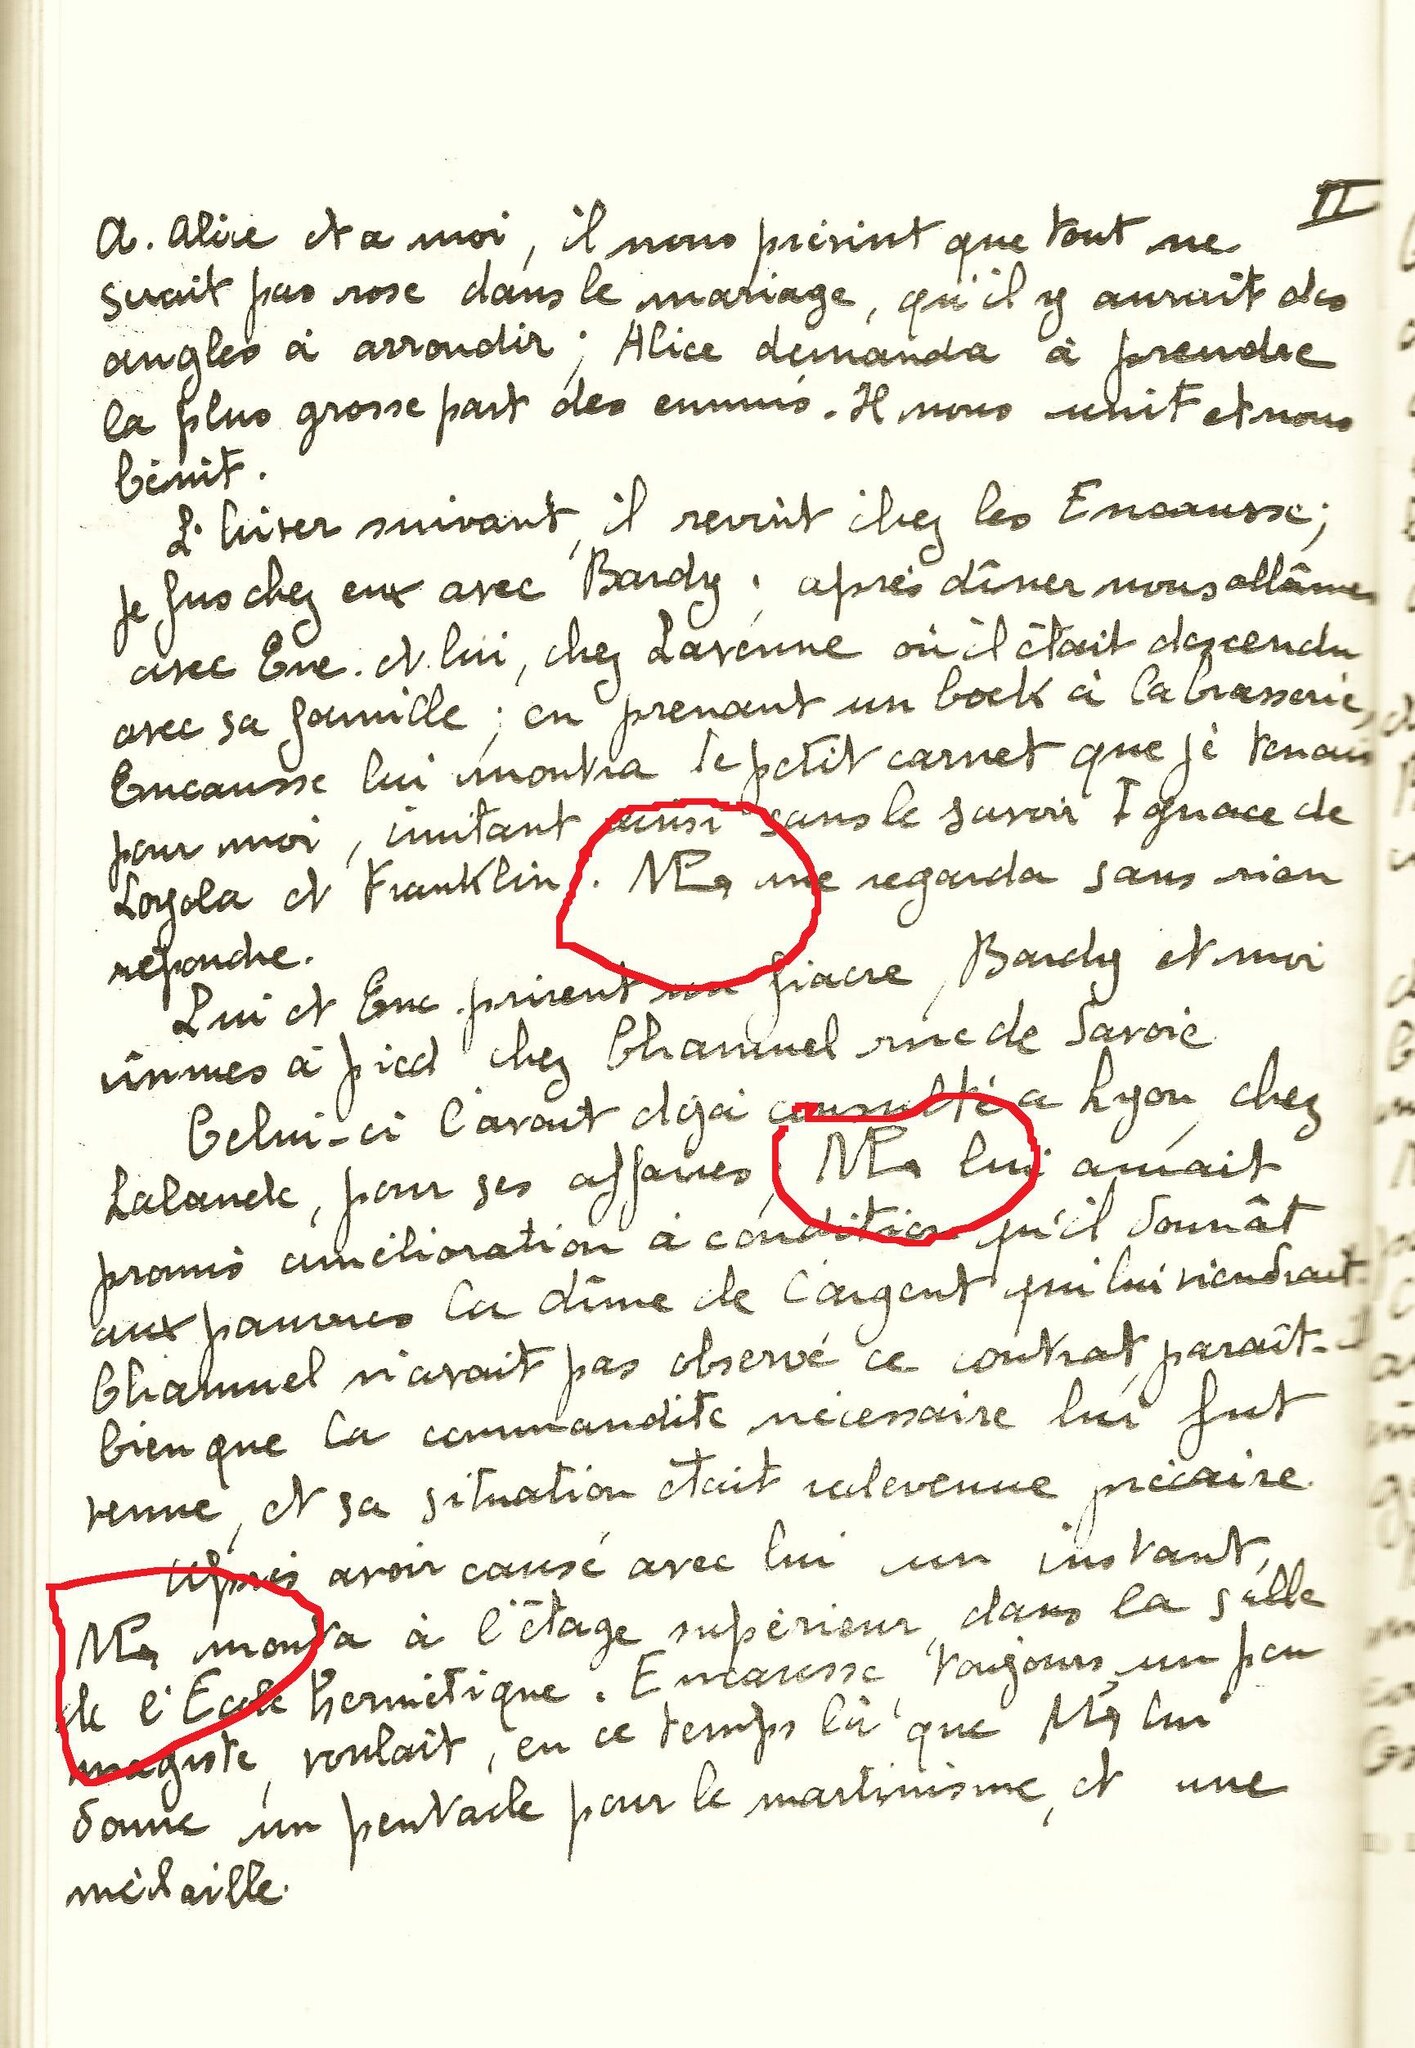 II
A. Alice et a moi, il nous prévint que tout ne
serait pas rose dans le mariage, qu'il y aurait des
angles à arrondir ; Alice demanda à prendre
la plus grosse part des ennuis. Il nous unit et nous
bénit.
L'hiver suivant, il revint chez les Encausse ;
je fus chez eux avec Bardy ; après dîner nous allâmes
avec Enc. et lui, chez Lavenne où il était descendu
avec sa famille ; en prenant un bock à la brasserie,
Encausse lui montra le petit carnet que je tenais
pour moi, imitant ainsi sans le savoir Ignace de
Loyola et Franklin. me regarda sans rien
répondre.
Lui et Enc. prirent un fiacre, Bardy et moi
vînmes à pied chez Chamuel rue de Savoie
Celui-ci l'avait déjà consulté a Lyon, chez
Lalande, pour ses affaires ; lui aurait
promis amélioration à condition qu'il donnât
aux pauvres la dîme de l'argent qui lui viendrait.
Chamuel n'avait pas observé ce contrat, paraît-il
bien que la commandite nécessaire lui fut
venue, et sa situation était redevenue précaire.
Après avoir causé avec lui un instant,
monta à l'étage supérieur, dans la salle
de l'Ecole hermétique. Encausse, toujours un peu
magiste, voulait, en ce temps là que lui
donne un pentacle pour le martinisme, et une
médaille.